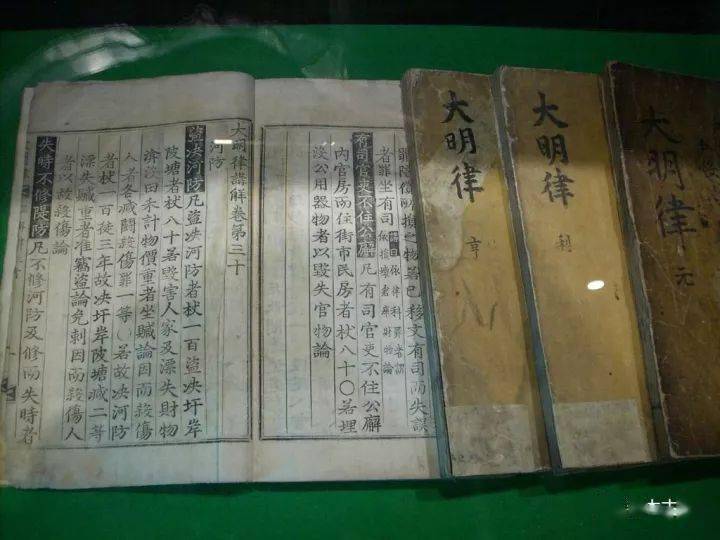 大明律
元
大明律
利
大明律
亨
之物若已移文有司而失誤
者罪坐有司
有司官吏不住公廨凡有司官吏不住公廨
內官房而住街市民房者杖八十○若埋
沒公用器物者以毀失官物論
大明律講解卷第三十
河防
盜決河防凡盜決河防者杖一百盜決圩岸
陂塘者杖八十若毀害人家及漂失財物
渰沒田禾計物價重者坐贓論因而殺傷
人者各減鬪殺傷罪一等○若故決河防
者杖一百徒三年故決圩岸陂塘減二等
漂失贓重者准竊盜論免刺因而殺傷人
者以故殺傷論
失時不修隄防凡不修河防及修而失時者